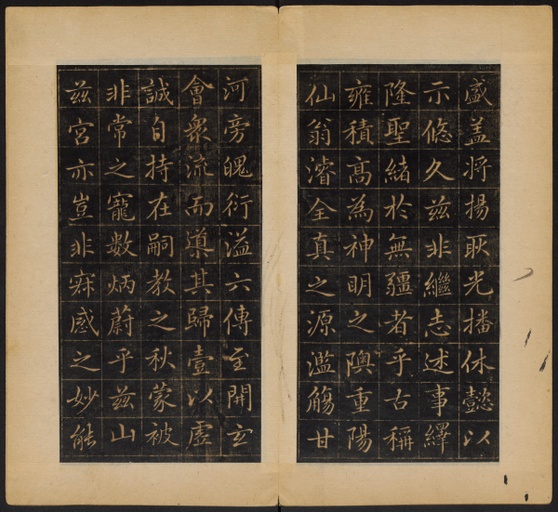 盛盖将揚耿光播休懿以
示悠久兹非繼志述事繹
隆聖緒於無疆者乎古稱
雍積髙為神明之隩重陽
仙翁濬全真之源濫觴甘
河旁魄衍溢六傳至開玄
會衆流而導其歸壹以虛
誠自持在嗣教之秋蒙被
非常之寵數炳蔚乎兹山
兹宮亦豈非寂感之妙能